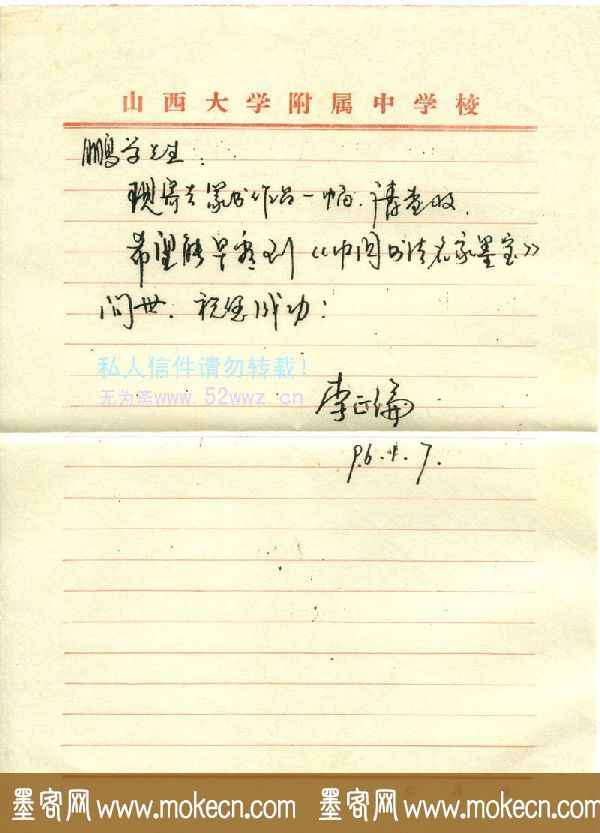 山西大学附属中学校
鹏学先生:
现寄去篆书作品一幅.请查收.
希望能早看到《中国书法名家墨宝》
问世.祝您成功!
私人信件请勿转载!
无为斋www.52wwz.cn
李正伦
96.4.7.
年 月 日
墨客网 www.mokecn.com 墨客网 www.mokecn.com